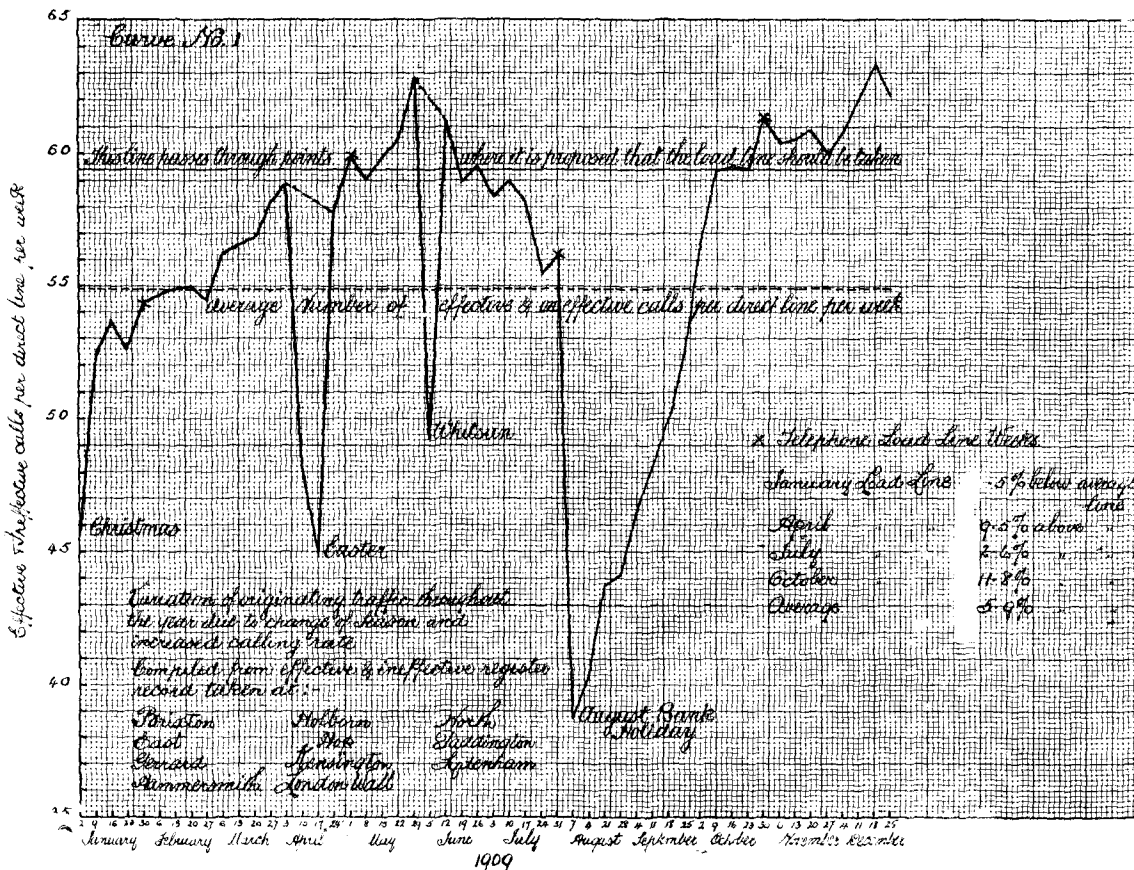 Curve No. 1
65
60
55
50
45
40
35
Effective & Ineffective calls per direct line per week
This line passes through points where it is proposed that the load line should be taken
Average Number of effective & ineffective calls per direct line per week
Christmas
Easter
Whitsun
August Bank
Holiday
x Telephone Load Line Weeks
January Load Line .5% below average
line
April " 9.5% above "
July " 2.6% " "
October " 11.8% " "
Average 5.9% " "
Variation of originating traffic throughout
the year due to change of season and
increased calling rate
Compiled from effective & ineffective register
record taken at :-
Brixton Holborn North
East Hop Paddington
Gerrard Kensington Sydenham
Hammersmith London Wall
2 9 16 23 30 6 13 20 27 6 13 20 27 3 10 17 24 1 8 15 22 29 5 12 19 26 3 10 17 24 31 7 14 21 28 4 11 18 25 2 9 16 23 30 6 13 20 27 4 11 18 25
January February March April May June July August September October November December
1909